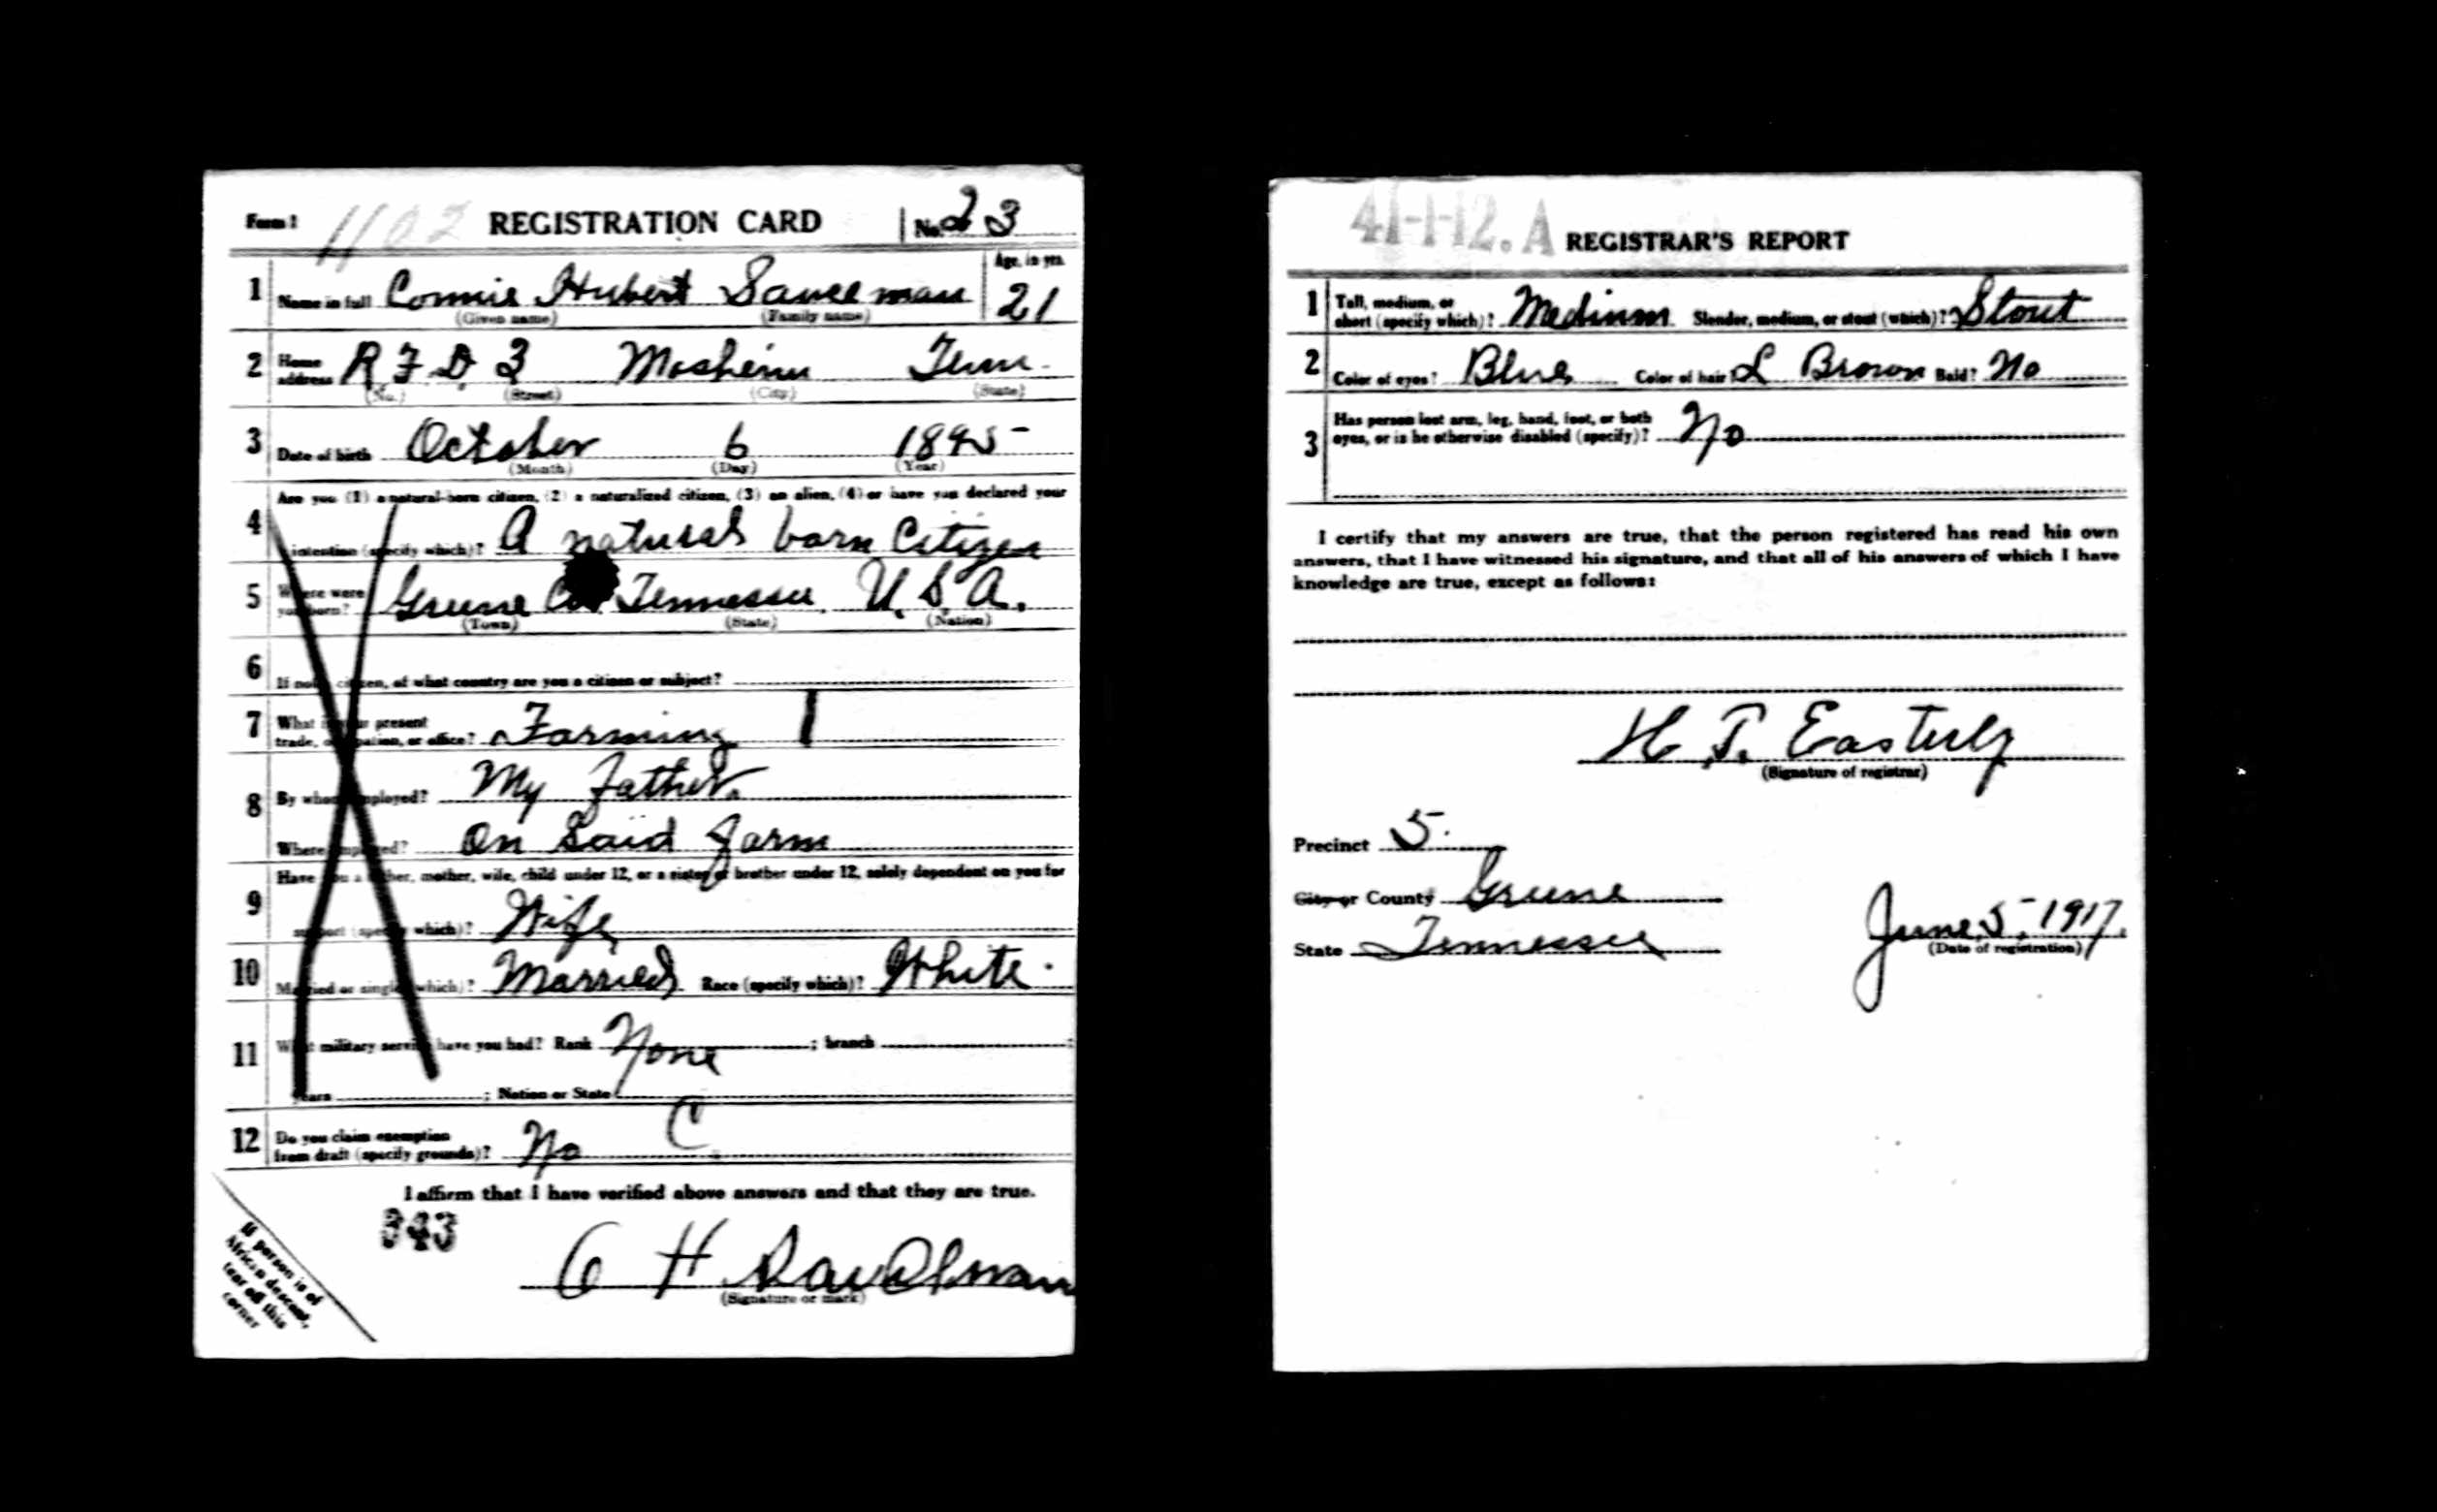 Form 1 1102 REGISTRATION CARD No. 23
1 Name in full Connie Hubert Sauceman Age, in yrs. 21
(Given name) (Family name)
2 Home address R F D 3 Mosheim Tenn.
(No.) (Street) (City) (State)
3 Date of birth October 6 1895
(Month) (Day) (Year)
4 Are you (1) a natural-born citizen, (2) a naturalized citizen, (3) an alien, (4) or have you declared your
intention (specify which)? A natural born Citizen
5 Where were you born? Greene Co. Tennessee U. S. A.
(Town) (State) (Nation)
6 If not a citizen, of what country are you a citizen or subject?
7 What is your present
trade, occupation, or office? Farming 1
8 By whom employed? My Father.
Where employed? On Said farm
9 Have you a father, mother, wife, child under 12, or a sister or brother under 12, solely dependent on you for
support (specify which)? Wife
10 Married or single (which)? Married Race (specify which)? White.
11 What military service have you had? Rank None ; branch ;
years ; Nation or State
C
12 Do you claim exemption
from draft (specify grounds)? No
I affirm that I have verified above answers and that they are true.
343
C H Sauceman
(Signature or mark)
If person is of
African descent,
tear off this
corner
41-1-12. A REGISTRAR'S REPORT
1 Tall, medium, or
short (specify which)? Medium Slender, medium, or stout (which)? Stout
2 Color of eyes? Blue Color of hair? L Brown Bald? No
3 Has person lost arm, leg, hand, foot, or both
eyes, or is he otherwise disabled (specify)? No
I certify that my answers are true, that the person registered has read his own
answers, that I have witnessed his signature, and that all of his answers of which I have
knowledge are true, except as follows:
H. T. Easterly
(Signature of registrar)
Precinct 5.
City or County Greene
State Tennessee
June 5, 1917.
(Date of registration)